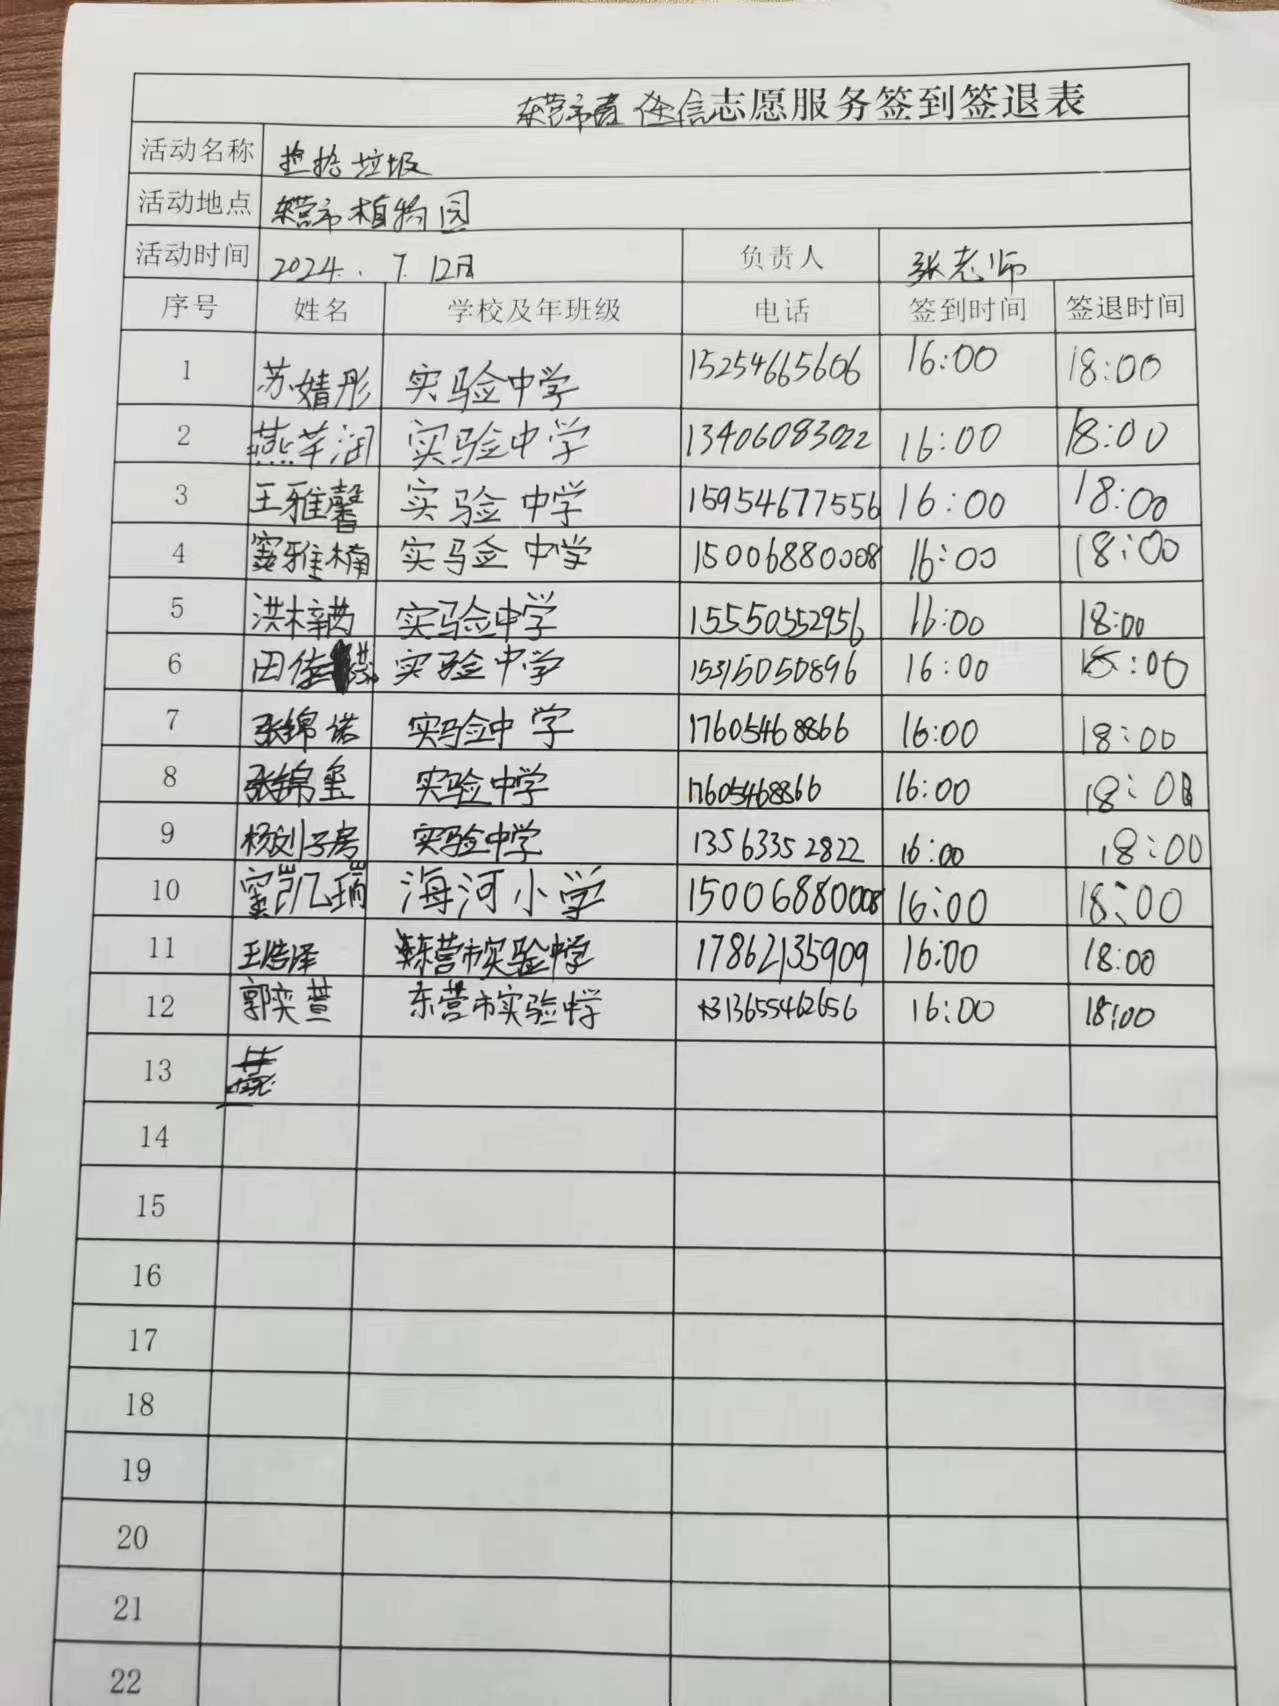 东营市 信志愿服务签到签退表
活动名称 捡拾垃圾
活动地点 东营市植物园
活动时间 2024. 7. 12日 负责人 张老师
序号 姓名 学校及年班级 电话 签到时间 签退时间
1 苏婧彤 实验中学 15254665606 16:00 18:00
2 燕芊润 实验中学 13406083022 16:00 18:00
3 王雅馨 实验中学 15954677556 16:00 18:00
4 窦雅楠 实验中学 15006880008 16:00 18:00
5 洪梓茜 实验中学 15550552956 16:00 18:00
6 田佳 实验中学 15315050896 16:00 18:00
7 张锦诺 实验中学 17605468866 16:00 18:00
8 张锦玺 实验中学 17605468866 16:00 18:00
9 杨刘子房 实验中学 13563352822 16:00 18:00
10 窦凯瑞 海河小学 15006880008 16:00 18:00
11 王浩泽 东营市实验中学 17862135909 16:00 18:00
12 郭奕萱 东营市实验中学 13655462656 16:00 18:00
13
14
15
16
17
18
19
20
21
22